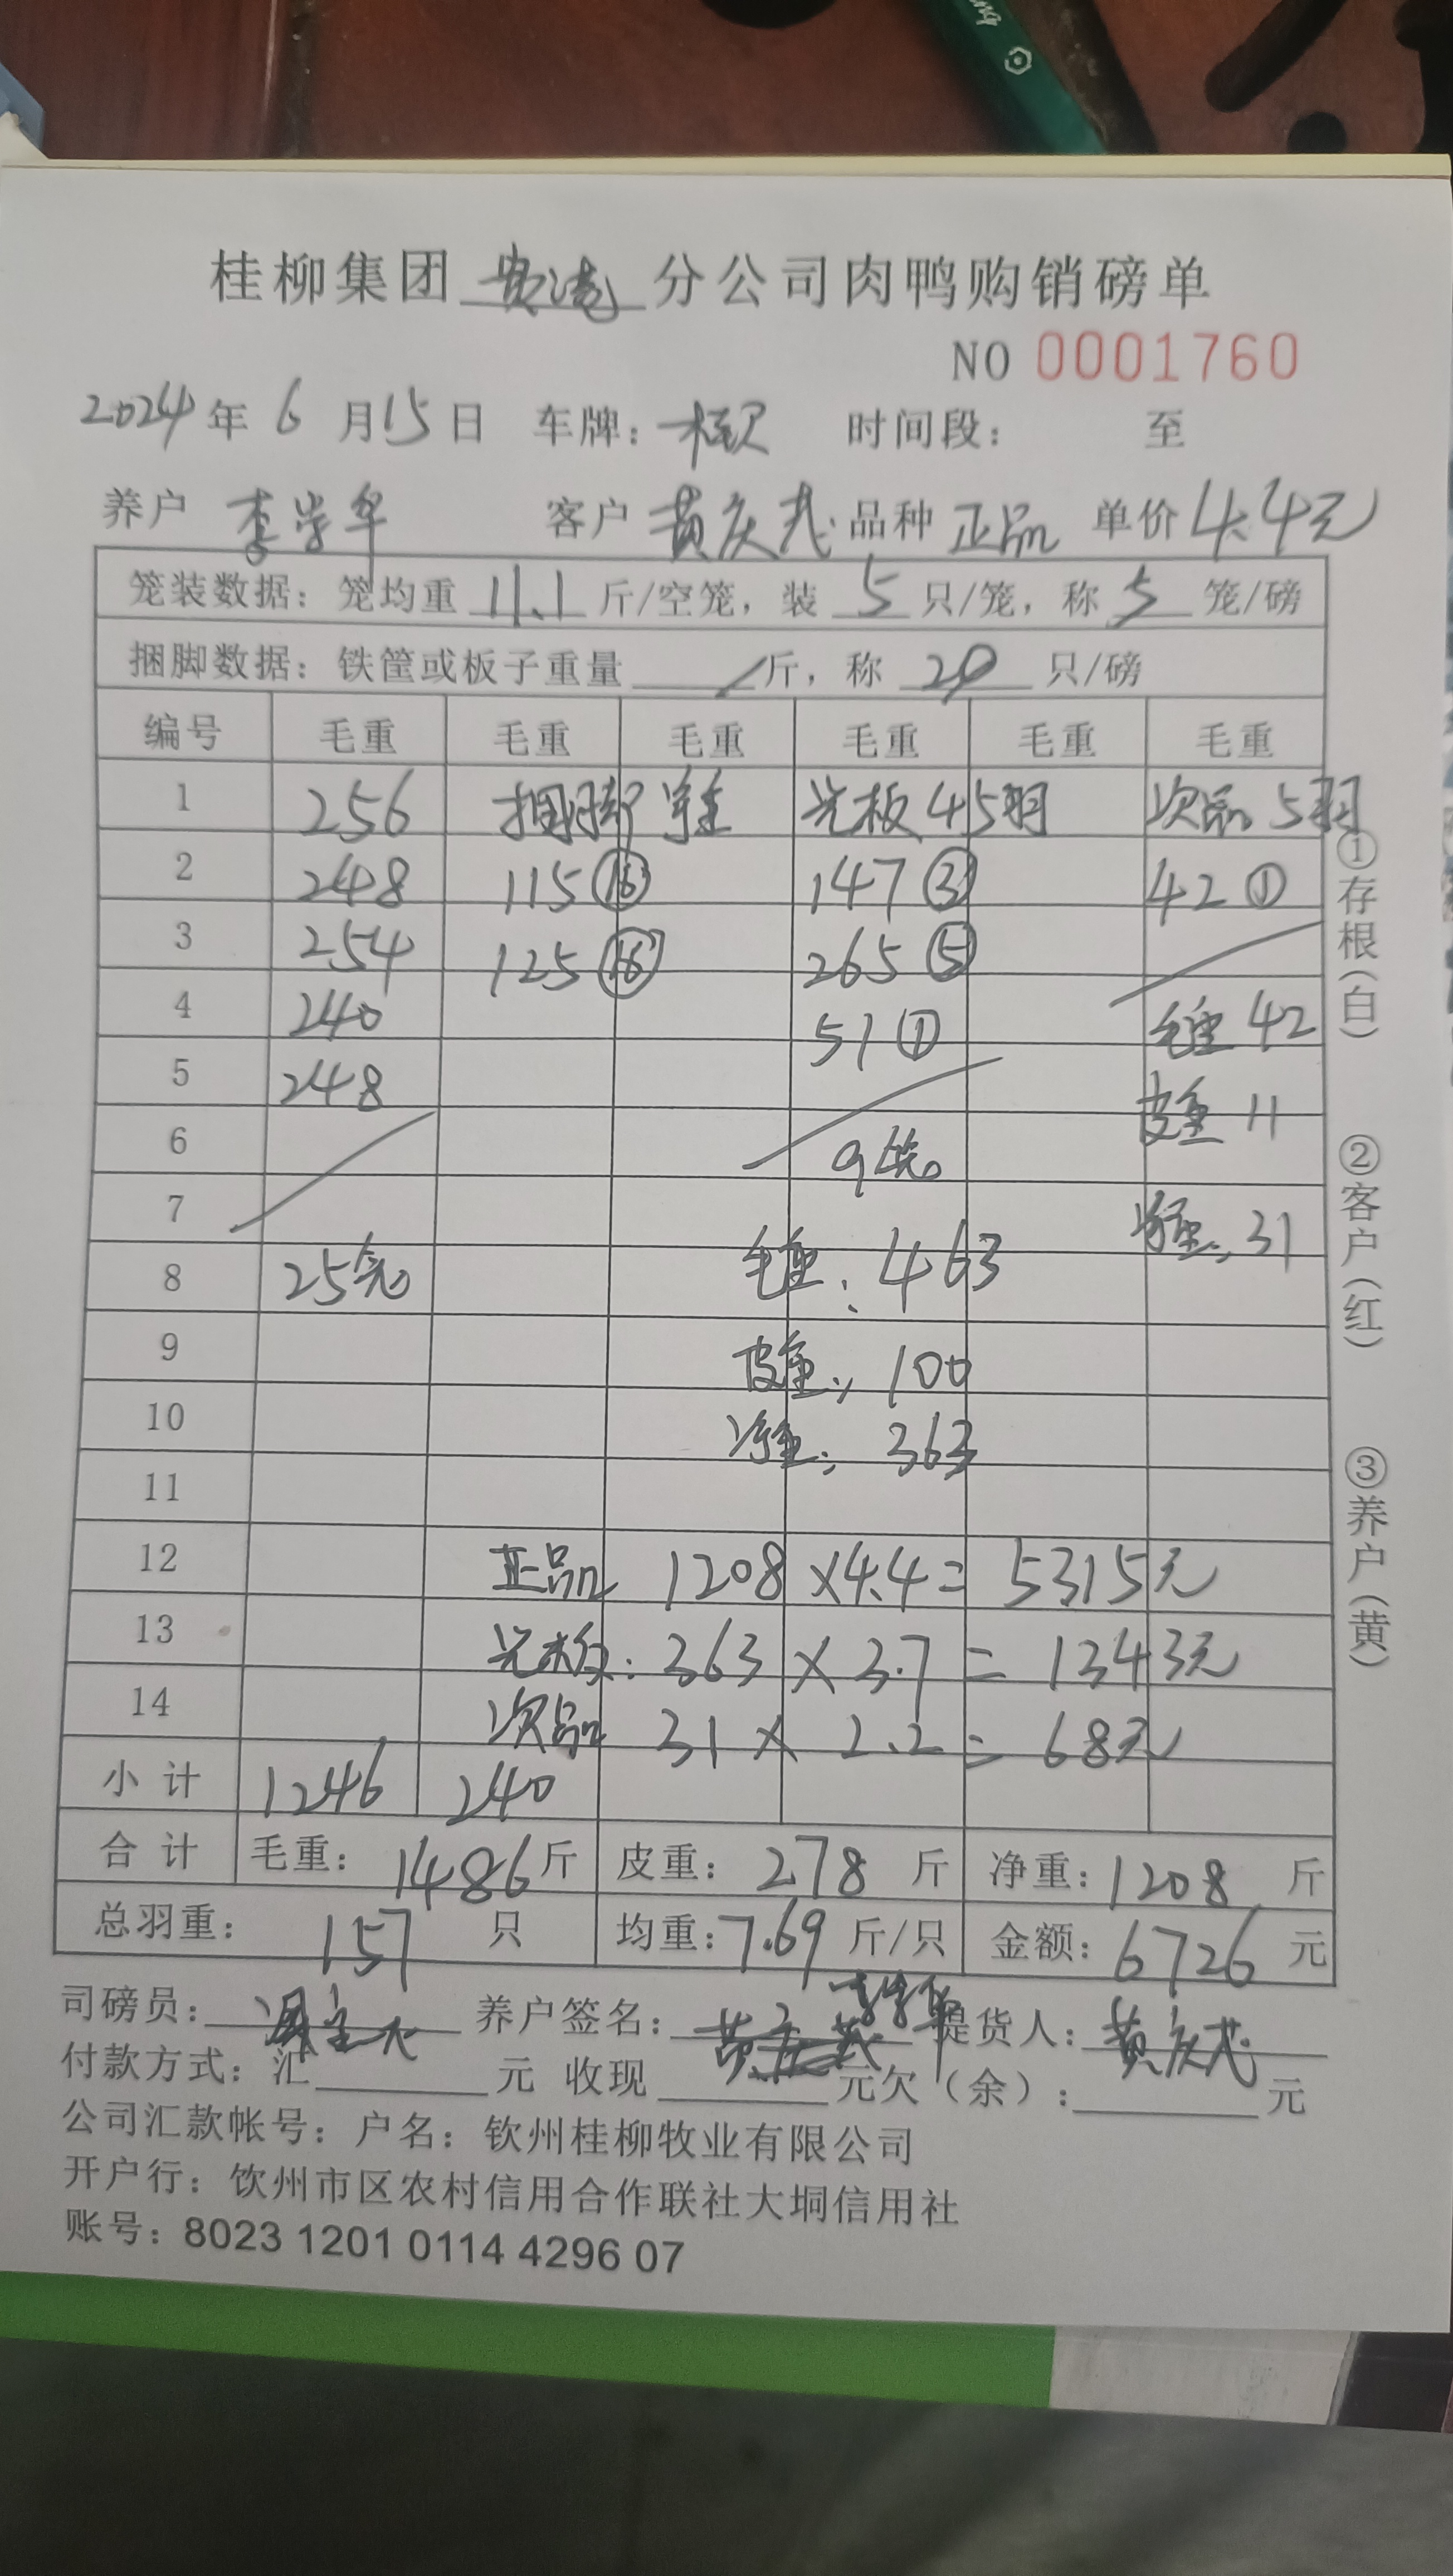 桂柳集团 贵港 分公司肉鸭购销磅单
NO 0001760
2024年 6 月15日 车牌: 时间段: 至
养户 李学华 客户 黄庆茂 品种 正品 单价 4.4元
笼装数据: 笼均重 11.1 斤/空笼, 装 5 只/笼, 称 5 笼/磅
捆脚数据: 铁筐或板子重量 / 斤, 称 20 只/磅
编号 毛重 毛重 毛重 毛重 毛重 毛重
1 256 捆脚 净重 光板 45羽 次品 5羽
2 248 115 ⑯ 147 ③ 42 ①
3 254 125 ⑯ 265 ⑤
4 240 51 ① 毛重 42
5 248 皮重 11
6 9笼
7 净重: 31
8 25笼 毛重: 463
9 皮重: 100
10 净重: 363
11
12 正品 1208 ×4.4= 5315元
13 光板: 363 × 3.7 = 1343元
14 次品 31 × 2.2 = 68元
小计 1246 240
合计 毛重: 1486 斤 皮重: 278 斤 净重: 1208 斤
总羽重: 157 只 均重: 7.69 斤/只 金额: 6726 元
李学华
司磅员: 养户签名: 黄庆茂 提货人: 黄庆茂
付款方式: 汇 元 收现 元欠(余): 元
公司汇款帐号: 户名: 钦州桂柳牧业有限公司
开户行: 钦州市区农村信用合作联社大垌信用社
账号: 8023 1201 0114 4296 07
①存根(白)
②客户(红)
③养户(黄)